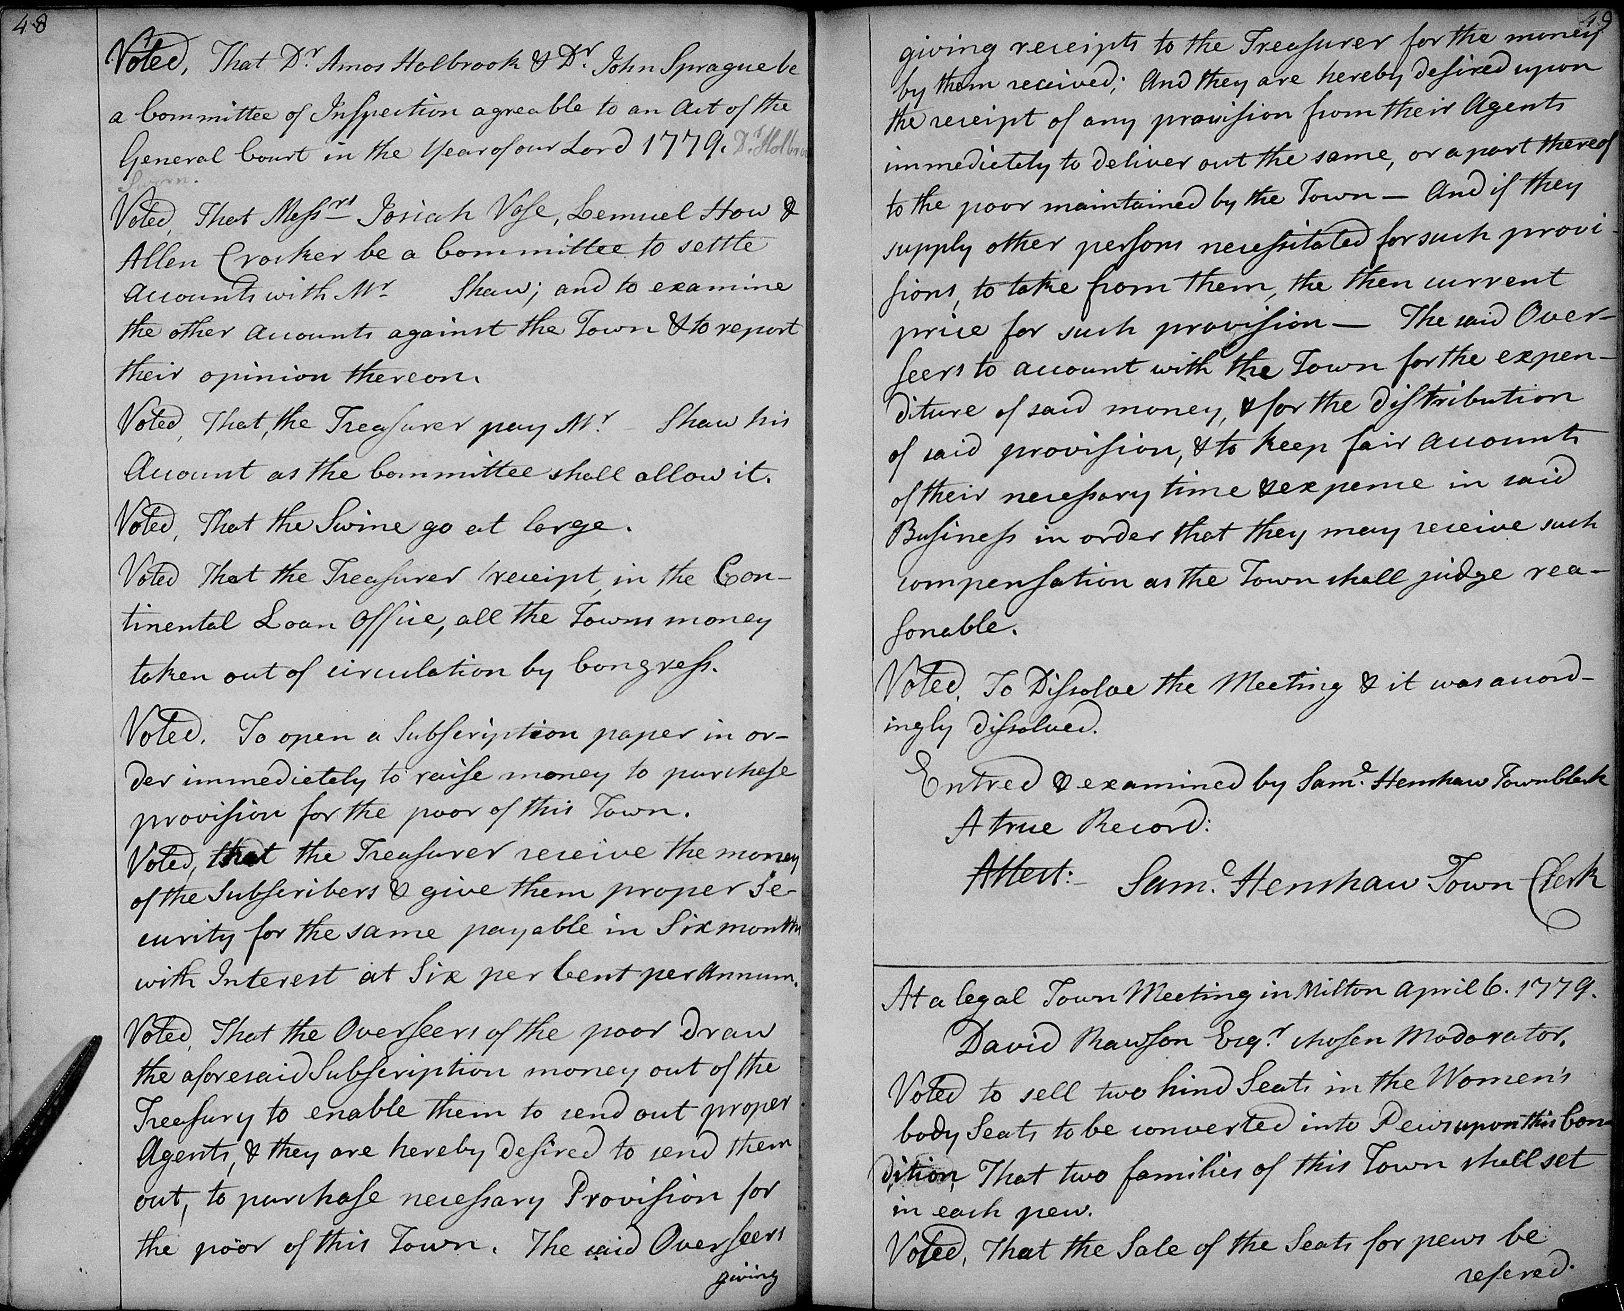 48
Voted, That Dr. Amos Holbrook & Dr. John Sprague be
a Committee of Inspection agreable to an Act of the
General Court in the Year of our Lord 1779. Dr. Holbro
Sworn.
Voted, That Messrs Josiah Vose, Lemuel How &
Allen Crocker be a Committee to settle
accounts with Mr. Shaw; and to examine
the other accounts against the Town & to report
their opinion thereon.
Voted, That, the Treasurer pay Mr. Shaw his
Account as the Committee shall allow it.
Voted, That the Swine go at large.
Voted That the Treasurer receipt, in the Con-
tinental Loan Office, all the Towns money
taken out of circulation by Congress.
Voted. To open a Subscription paper in or-
der immedietely to raise money to purchase
provision for the poor of this Town.
Voted, that the Treasurer receive the money
of the Subscribers & give them proper Se-
curity for the same payable in Six months
with Interest at Six per Cent per Annum.
Voted, That the Overseers of the poor Draw
the aforesaid Subscription money out of the
Treasury to enable them to send out proper
Agents, & they are hereby desired to send them
out, to purchase necessary Provision for
the poor of this Town. The said Overseers
giving
49
giving receipts to the Treasurer for the money
by them received; And they are hereby desired upon
the receipt of any provision from their Agents
immedietely to deliver out the same, or a part thereof
to the poor maintained by the Town — And if they
supply other persons necessitated for such provi-
sions, to take from them, the then current
price for such provision — The said Over-
seers to account with the Town for the expen-
diture of said money, & for the distribution
of said provision, & to keep fair accounts
of their necessary time & expence in said
Business in order that they may receive such
compensation as the Town shall judge rea-
sonable.
Voted, To Dissolve the Meeting & it was accord-
ingly dissolved.
Entred & examined by Saml. Henshaw Town Clerk
A true Record:
Attest:— Saml. Henshaw Town Clerk
At a legal Town Meeting in Milton April 6. 1779.
David Rawson Esqr. chosen Modorator.
Voted to sell two hind Seats in the Women's
body Seats to be converted into Pews upon this Con
dition, That two families of this Town shall set
in each pew.
Voted, That the Sale of the Seats for pews be
refered.